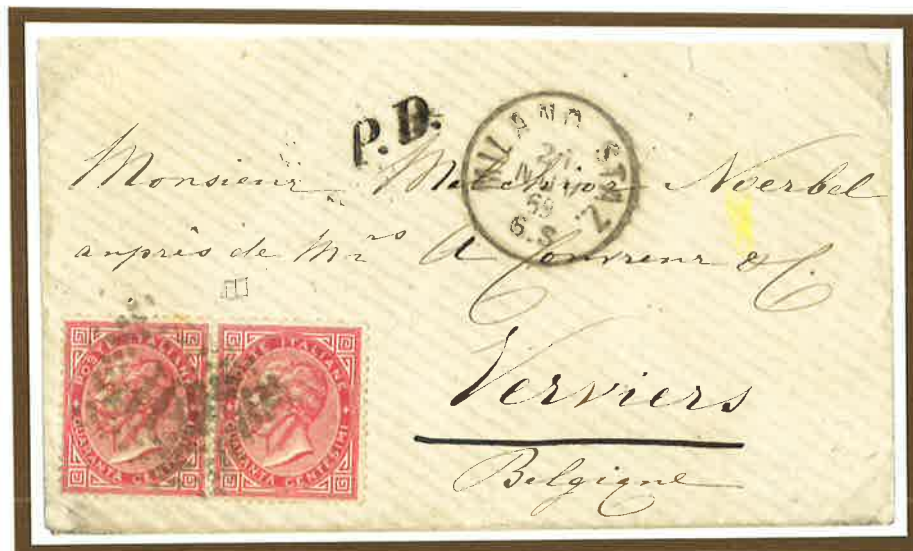 P.D.
MILANO STAZ.
NOV
69
Monsieur Melchior Noerbel
auprès de Mrs A &C.
Verviers
Belgique
POSTE ITALIANE
QUARANTA CENTESIMI
POSTE ITALIANE
QUARANTA CENTESIMI